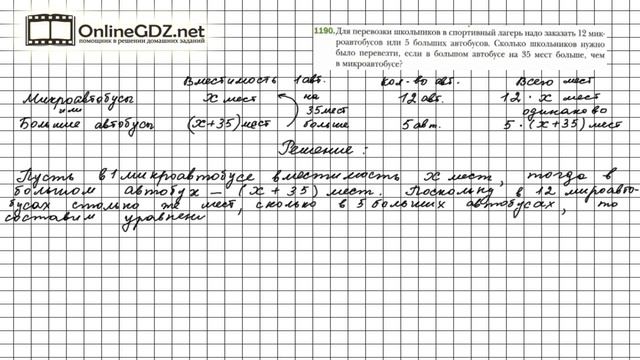 OnlineGDZ.net
помощник в решении домашних заданий
1190. Для перевозки школьников в спортивный лагерь надо заказать 12 мик-
роавтобусов или 5 больших автобусов. Сколько школьников нужно
было перевезти, если в большом автобусе на 35 мест больше, чем
в микроавтобусе?
Вместимость 1 авт. Кол-во авт. Всего мест
Микроавтобусы х мест на 12 авт. 12 · х мест
или 35 мест одинаково
Большие автобусы (х+35) мест больше 5 авт. 5 · (х+35) мест
Решение:
Пусть в 1 микроавтобусе вместимость х мест, тогда в
большом автобух – (х + 35) мест. Поскольку в 12 микроавто-
бусах столько же мест, сколько в 5 больших автобусах, то
составим уравнени